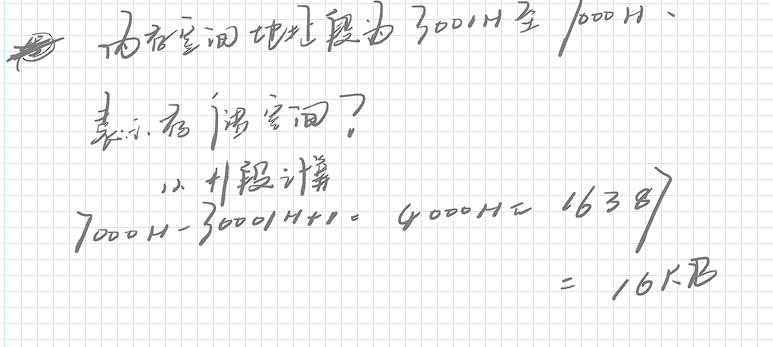 内存空间地址段为3001H至7000H.
表示存储空间?
计算
7000H-30001H+1= 4000H= 16387
= 16KB